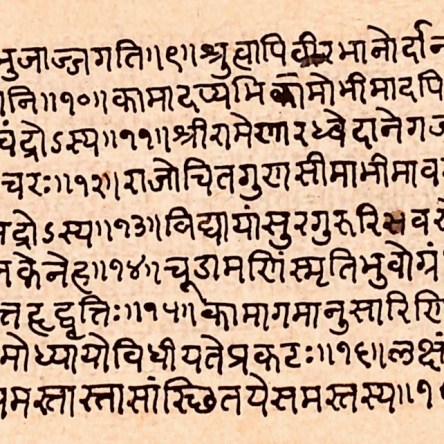 नुजाज्जगति॥९॥श्रुत्वापिवीरभानोर्दान
नि॥१०॥कामादप्यभिकामोभीमादपि
चंद्रोऽस्य॥११॥श्रीरामेणारध्वेदानेगज
चरः॥१२॥राजोचितगुणसीमाभीमाव
द्रोऽस्य॥१३॥विद्यायांसुरगुरूरिव
नकेनेह॥१४॥चूडामणिंस्मृतिभुवोग्रं
त्तहृद्वृत्तिः॥१५॥कामागमानुसारिणि
मोध्यायोविधीयतेप्रकटः॥१६॥लक्ष
समस्तास्तासांस्छितयेसमस्तस्य॥१